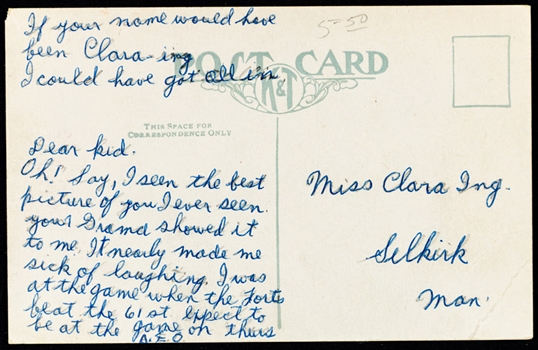 If your name would have
been Clara-ing
I could have got all in.
5-50
POST CARD
K&T
THIS SPACE FOR
CORRESPONDENCE ONLY
Dear kid.
Oh! Say, I seen the best
picture of you I ever seen.
your Grama showed it
to me. It nearly made me
sick of laughing. I was
at the game when the Forts
beat the 61st. expect to
be at the game on thurs
A.E.O.
Miss Clara Ing.
Selkirk
Man.